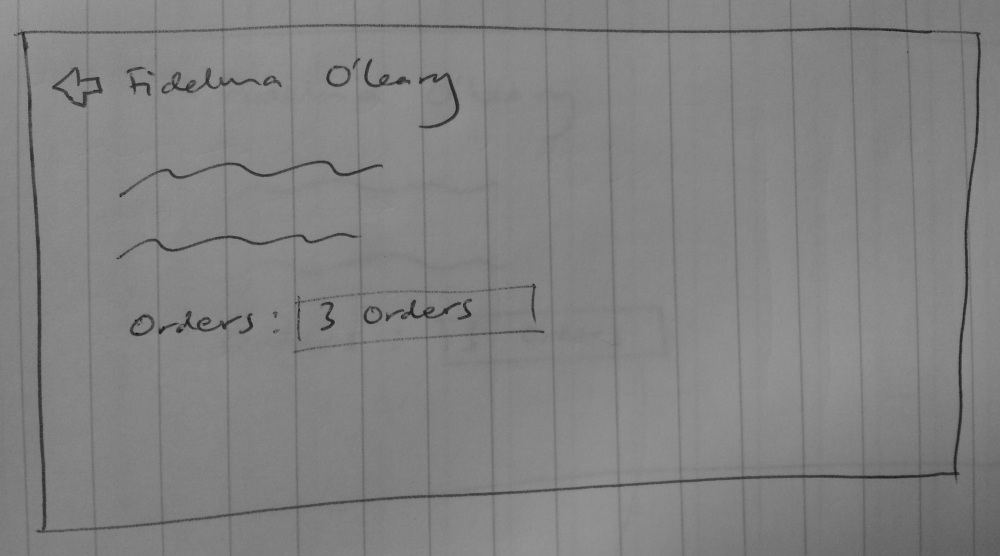 Fidelma O'Leary
Orders: 3 Orders